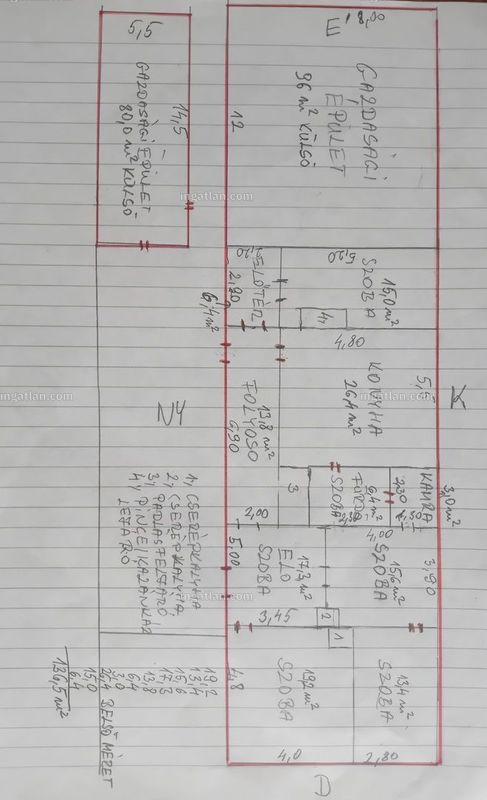 É
8,00
5,5
14,5
GAZDASÁGI ÉPÜLET
80,0 m² KÜLSŐ
12
GAZDASÁGI
ÉPÜLET
96 m² KÜLSŐ
ingatlan.com
ingatlan.com
ELŐTÉR
2,20
6,4 m²
5,20
SZOBA
15,0 m²
4,
4,80
NY
K
FOLYOSÓ
13,8 m²
6,90
KONYHA
26,4 m²
5,5
ingatlan.com
ingatlan.com
3
2,00
FÜRDŐ
SZOBA
6,4 m²
2,30
KAMRA
3,0 m²
1, CSERÉPKÁLYHA
2, CSERÉPKÁLYHA
3, PADLÁSFELJÁRÓ
4, PINCE/KAZÁNHÁZ
LEJÁRÓ
5,00
ELŐ
SZOBA
17,3 m²
3,45
4,00
SZOBA
15,6 m²
3,90
2
1
4,8
SZOBA
19,2 m²
4,0
SZOBA
13,4 m²
2,80
19,2
13,4
15,6
17,3
13,8
6,4
3,0
26,4 BELSŐ MÉRET
15,0
6,4
136,5 m²
D
ingatlan.com
ingatlan.com